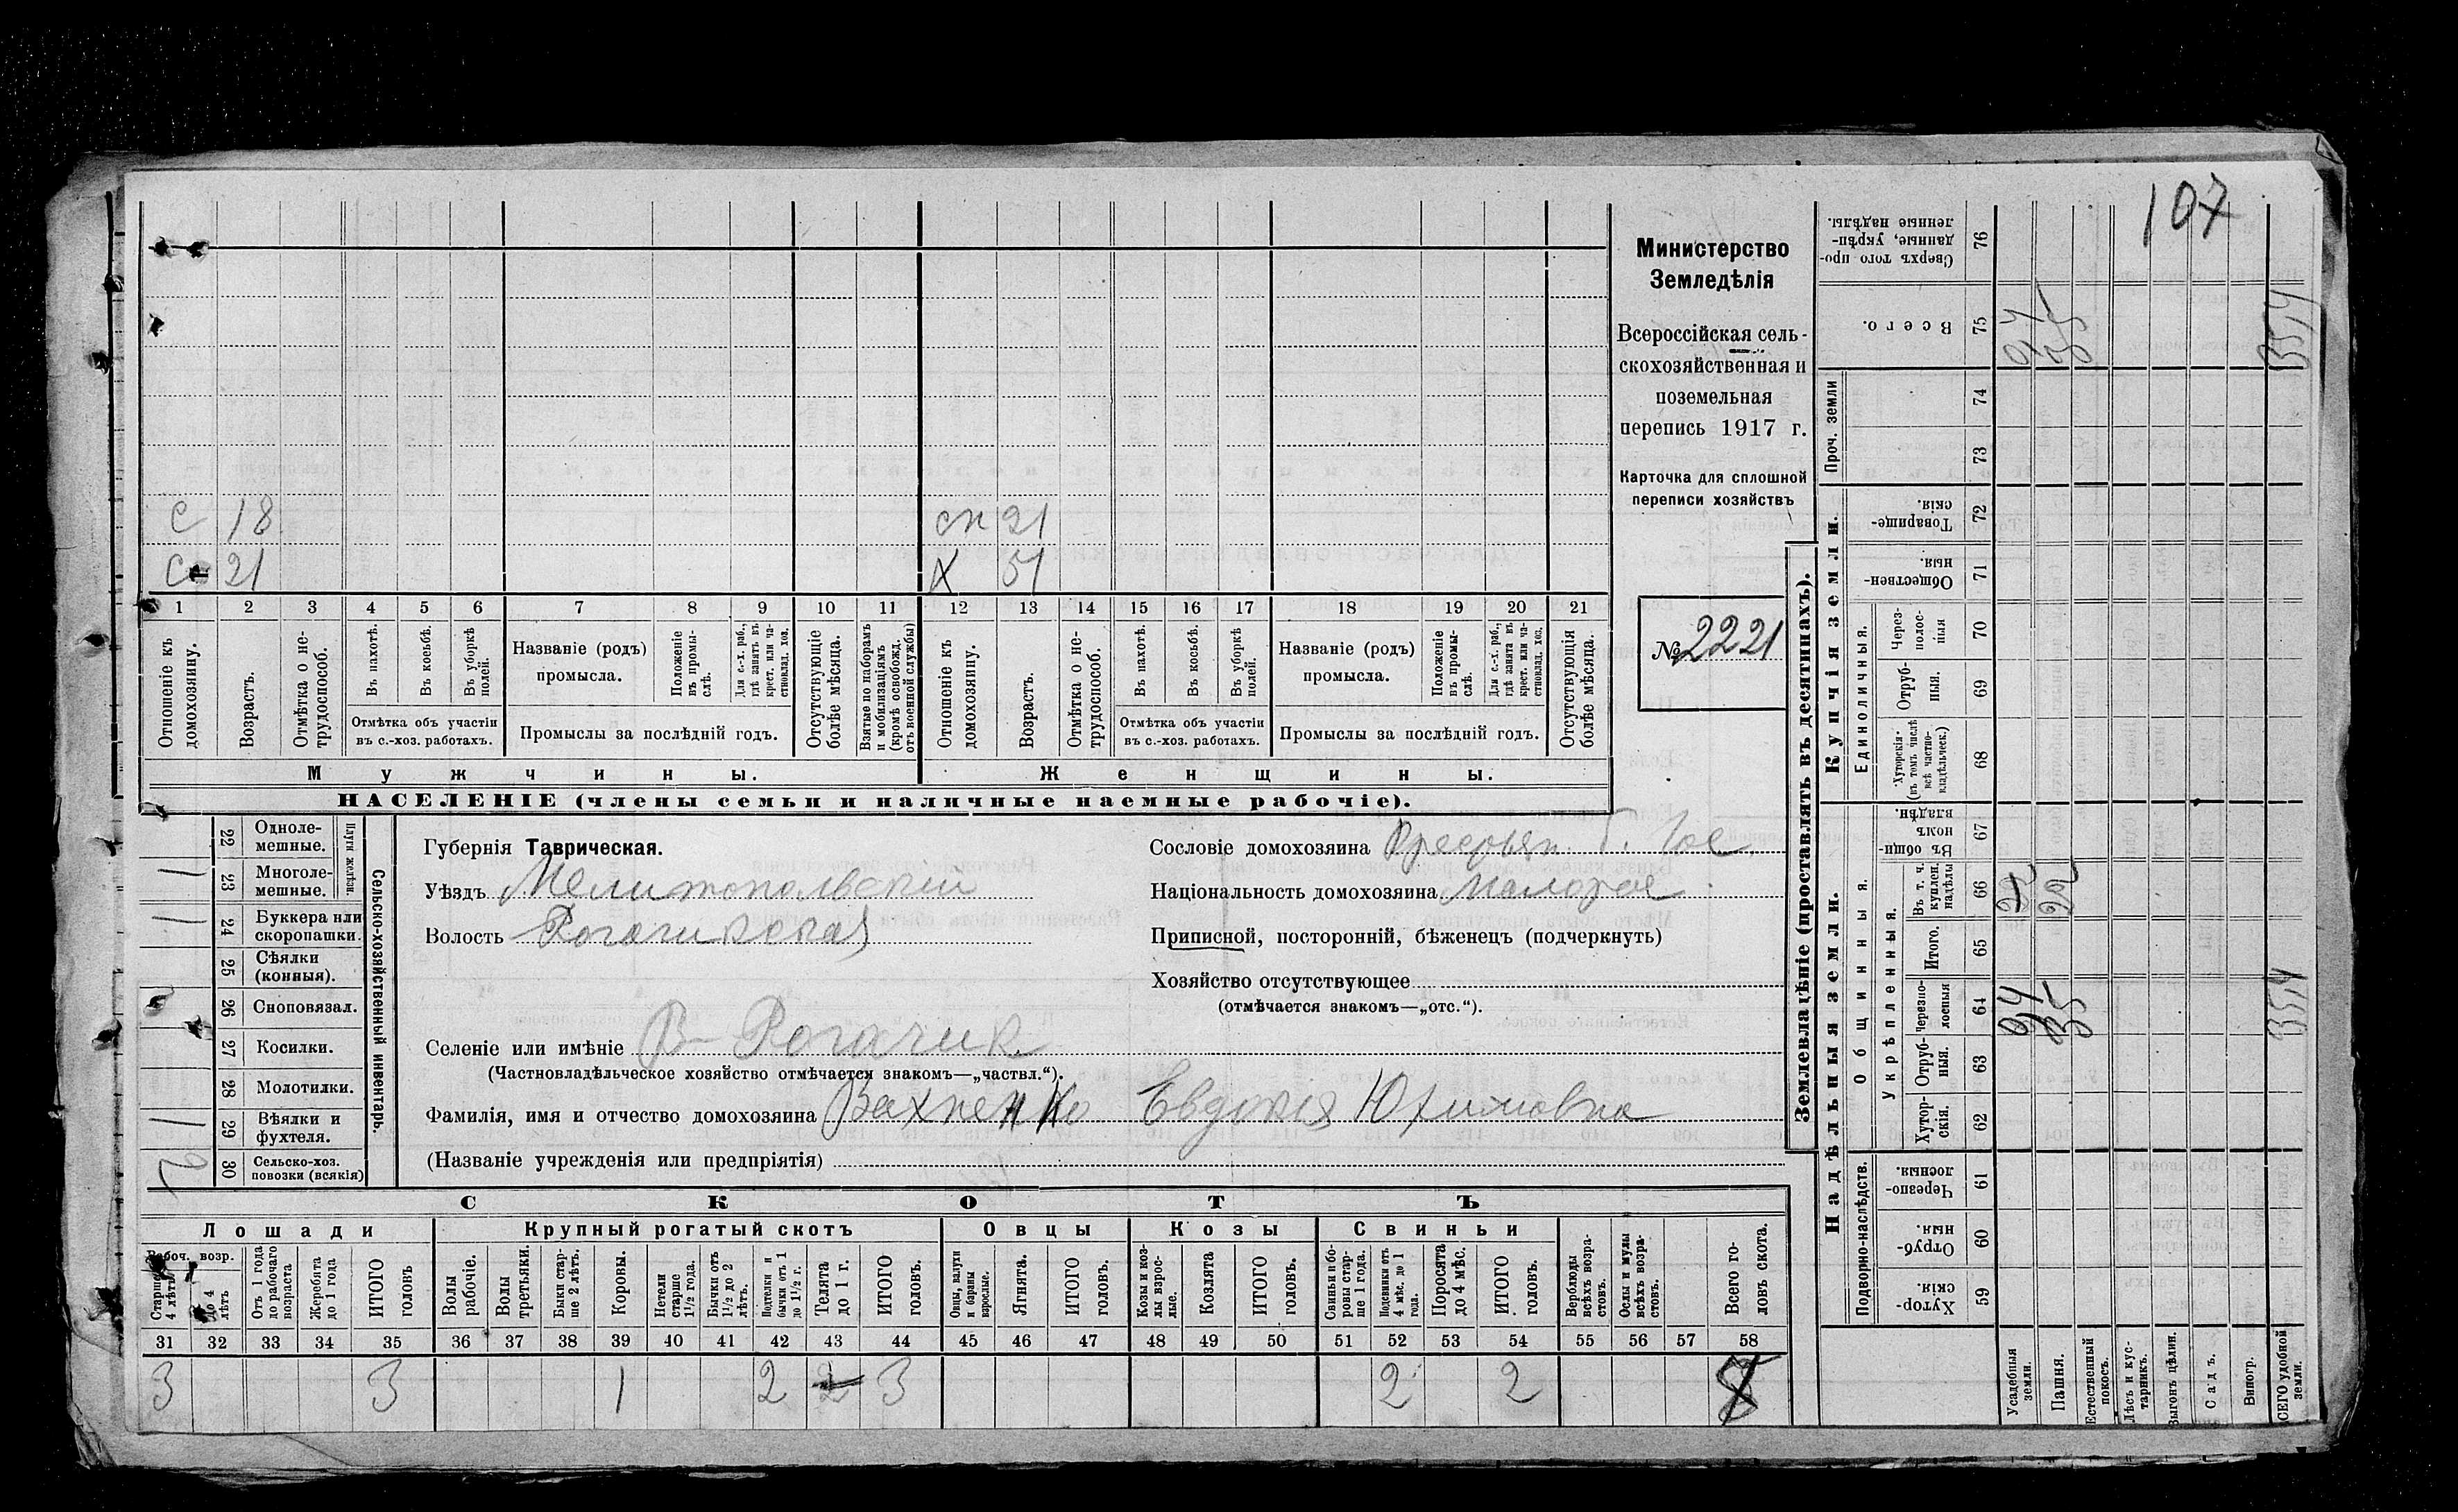 107
Министерство
Земледѣлія
Всероссійская сель-
скохозяйственная и
поземельная
перепись 1917 г.
Карточка для сплошной
переписи хозяйствъ
№ 2221
с 18 сн 21
с 21 х 51
1 2 3 4 5 6 7 8 9 10 11 12 13 14 15 16 17 18 19 20 21
Отношеніе къ домохозяину.
Возрастъ.
Отмѣтка о не-трудоспособ.
Въ пахотѣ.
Въ косьбѣ.
Въ уборкѣ полей.
Отмѣтка объ участіи
въ с.-хоз. работахъ.
Названіе (родъ)
промысла.
Положеніе въ промы-слѣ.
Для с.-х. раб., гдѣ занятъ въ крест. или ча-стновлад. хоз.
Промыслы за послѣдній годъ.
Отсутствующіе болѣе мѣсяца.
Взятые по наборамъ и мобилизаціямъ (кромѣ освобожд. отъ военной службы)
Отношеніе къ домохозяину.
Возрастъ.
Отмѣтка о не-трудоспособ.
Въ пахотѣ.
Въ косьбѣ.
Въ уборкѣ полей.
Отмѣтка объ участіи
въ с.-хоз. работахъ.
Названіе (родъ)
промысла.
Положеніе въ промы-слѣ.
Для с.-х. раб., гдѣ занята въ крест. или ча-стновлад. хоз.
Промыслы за послѣдній годъ.
Отсутствующія болѣе мѣсяца.
Мужчины. Женщины.
НАСЕЛЕНІЕ (члены семьи и наличные наемные рабочіе).
Сельско-хозяйственный инвентарь.
Плуги желѣзн.
22 Одноле-мешные.
1 23 Многоле-мешные.
1 24 Буккера или скоропашки.
25 Сѣялки (конныя).
26 Сноповязал.
27 Косилки.
28 Молотилки.
1 29 Вѣялки и фухтеля.
30 Сельско-хоз. повозки (всякія)
Губернія Таврическая.
Уѣздъ Мелитопольскій
Волость Рогачикская
Селеніе или имѣніе В-Рогачик
(Частновладѣльческое хозяйство отмѣчается знакомъ—„частвл.“).
Фамилія, имя и отчество домохозяина Вахненко Евдокія Юхимовна
(Названіе учрежденія или предпріятія)
Сословіе домохозяина Крестьян.
Національность домохозяина Малорос
Приписной, посторонній, бѣженецъ (подчеркнуть)
Хозяйство отсутствующее
(отмѣчается знакомъ—„отс.“).
СКОТЪ
Лошади Крупный рогатый скотъ Овцы Козы Свиньи
Рабоч. возр.
Старше 4 лѣтъ
до 4 лѣтъ
Отъ 1 года до рабочаго возраста
Жеребята до 1 года
ИТОГО головъ
Волы рабочіе.
Волы третьяки.
Быки стар-ше 2 лѣтъ.
Коровы.
Нетели старше 1½ года.
Бычки отъ 1½ до 2 лѣтъ.
Подтелки и бычки отъ 1 до 1½ г.
Телята до 1 г.
ИТОГО головъ.
Овцы, валухи и бараны взрослые.
Ягнята.
ИТОГО головъ.
Козы и коз-лы взрос-лые.
Козлята
ИТОГО головъ.
Свиньи и бо-ровы стар-ше 1 года.
Подсвинки отъ 4 мѣс. до 1 года.
Поросята до 4 мѣс.
ИТОГО головъ.
Верблюды всѣхъ возра-стовъ.
Ослы и мулы всѣхъ возра-стовъ.
Всего го-ловъ скота.
31 32 33 34 35 36 37 38 39 40 41 42 43 44 45 46 47 48 49 50 51 52 53 54 55 56 57 58
3 3 1 2 2 3 2 2 8
Землевладѣніе (проставлять въ десятинахъ).
Купчія земли.
Надѣльныя земли.
Сверхъ того про-данные, укрѣп-ленные надѣлы. 76
Всего. 75 35,4
Проч. земли 74 73
Товарище-скія 72
Обществен-ныя. 71
Единоличныя.
Через-полос-ныя 70
Отруб-ныя. 69
Хуторскія (въ томъ числѣ всѣ частно-владѣльческ.) 68
Общинныя.
Въ общи-номъ владѣн. 67
Укрѣпленныя.
Въ т. ч. куплен. надѣлы 66
Итого. 65
Черезпо-лосныя 64 35,4
Отруб-ныя. 63
Хутор-скія. 62
Подворно-наслѣдств.
Черезпо-лосныя. 61
Отруб-ныя. 60
Хутор-скія. 59
Усадебныя земли.
Пашня.
Естественный покосъ.
Лѣсъ и кус-тарникъ.
Выгонъ цѣлин.
Садъ.
Виногр.
ВСЕГО удобной земли.